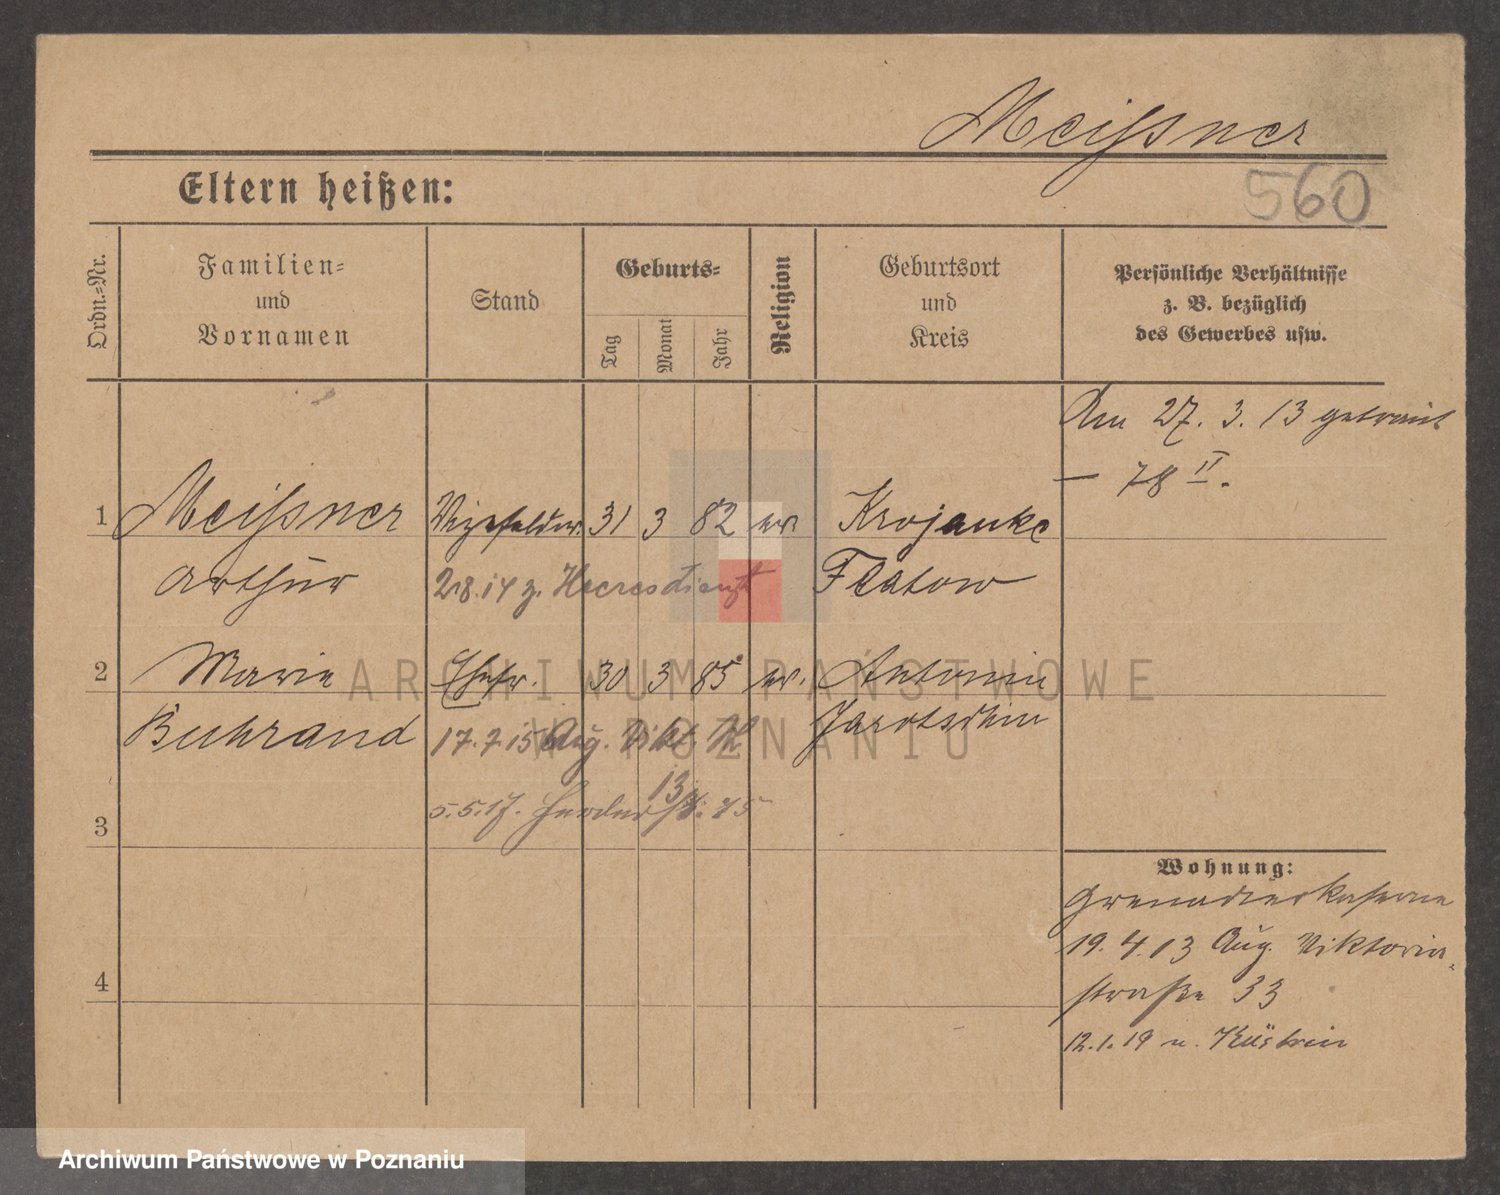 Meißner
560
Eltern heißen:
Ordn.-Nr.
Familien-
und
Vornamen
Stand
Geburts-
Tag
Monat
Jahr
Religion
Geburtsort
und
Kreis
Persönliche Verhältnisse
z. B. bezüglich
des Gewerbes usw.
Am 27. 3. 13 getraut
— 78 II.
1 Meißner Vizefeldw. 31 3 82 ev. Krojanke
Arthur 2.8.14 z. Heeresdienst Flatow
2 Marie Ehefr. 30 3 85 ev. Antonin
Buhrand 17.7.15 Aug. Vikt. Jarotschin
13
3 5.5.17. str. 45
Wohnung:
Grenadierkaserne
19. 4. 13 Aug. Viktoria-
straße 33
4
12.1.19 n. Küstrin
ARCHIWUM PAŃSTWOWE
W POZNANIU
Archiwum Państwowe w Poznaniu